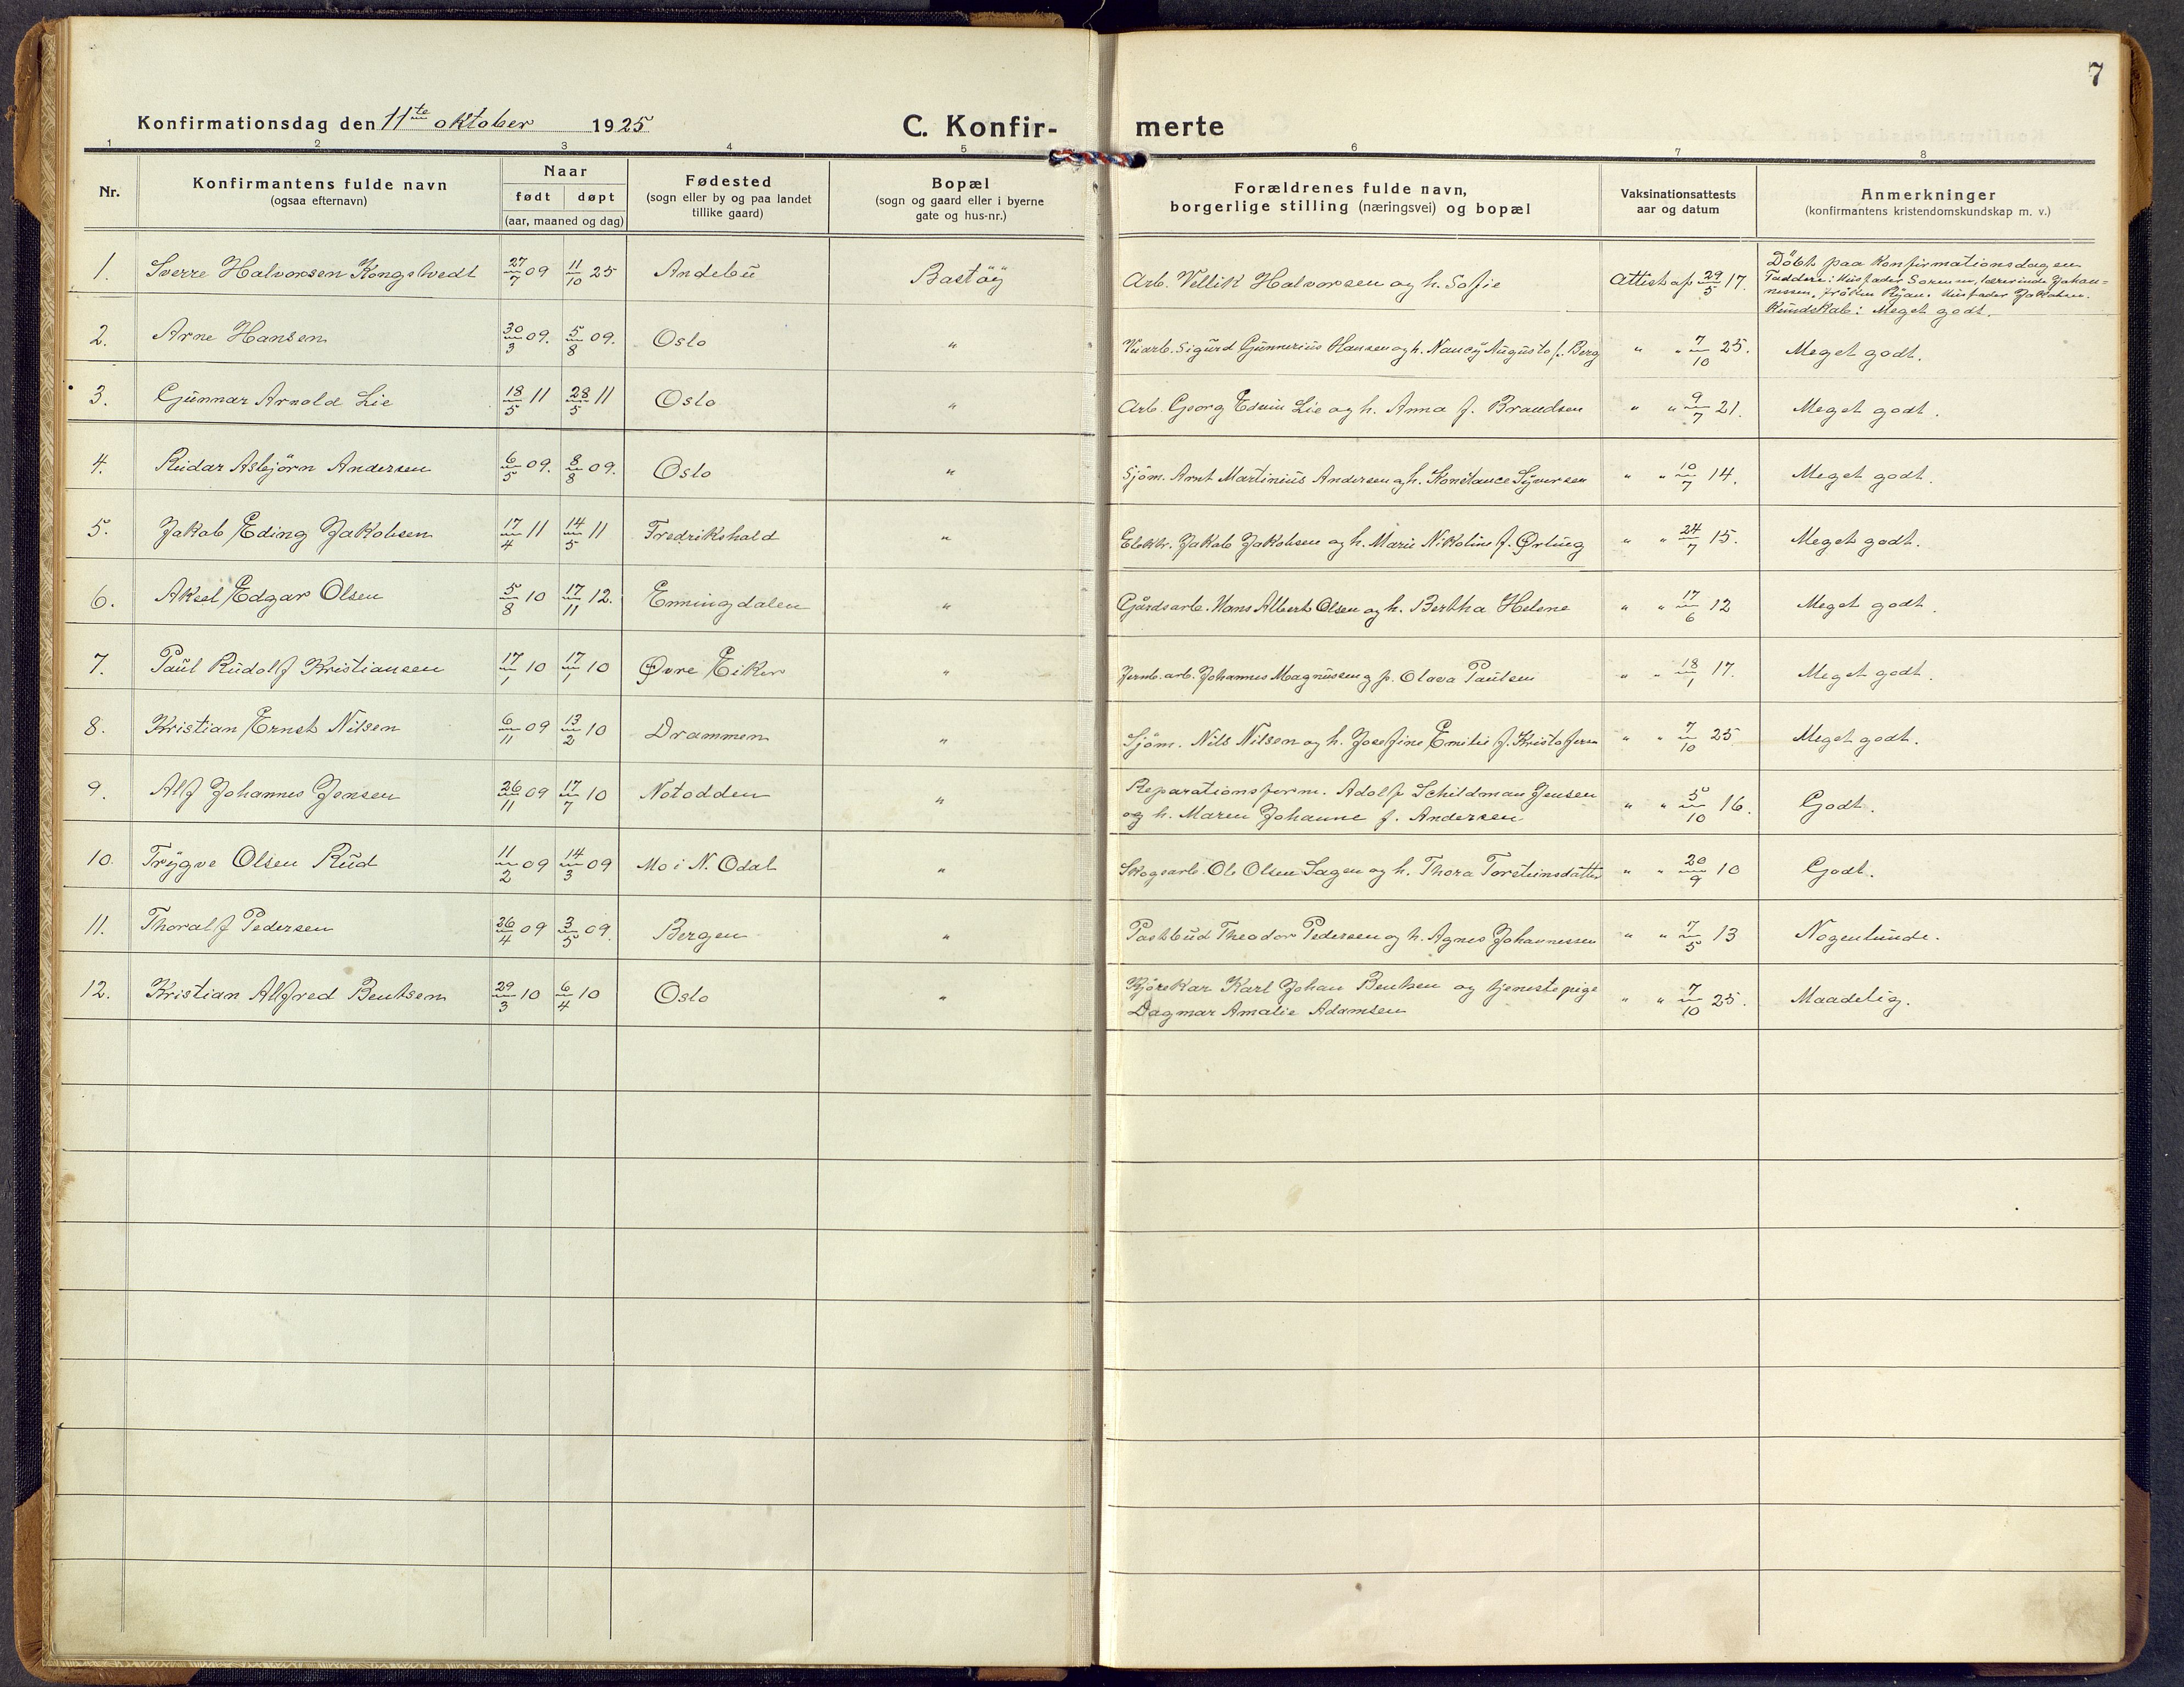 7
Konfirmationsdag den 11te oktober 1925 C. Konfir- merte
1 2 3 4 5 6 7 8
Nr. Konfirmantens fulde navn (ogsaa efternavn) Naar født døpt (aar, maaned og dag) Fødested (sogn eller by og paa landet tillike gaard) Bopæl (sogn og gaard eller i byerne gate og hus-nr.) Forældrenes fulde navn, borgerlige stilling (næringsvei) og bopæl Vaksinationsattests aar og datum Anmerkninger (konfirmantens kristendomskundskap m. v.)
1. Sverre Halvorsen Kongstvedt 27/7 09 11/10 25 Andebu Bastöy Arb. Vellik Halvorsen og h. Sofie Attest af 29/5 17. Döbt paa Konfirmationsdagen
Faddere: Husfader Sorensen, lærerinde Johan-
nessen, fröken Ryan. Husfader Jakobsen.
Kundskab: Meget godt.
2. Arne Hansen 30/3 09. 5/8 09. Oslo " Veiarb. Sigurd Gunnerius Hansen og h. Nancy Augusta f. Berg " " 7/10 25. Meget godt.
3. Gunnar Arnold Lie 18/5 11 28/5 11 Oslo " Arb. Georg Edvin Lie og h. Anna f. Brandsen " " 9/7 21. Meget godt.
4. Reidar Asbjörn Andersen 6/5 09. 8/8 09. Oslo " Sjöm. Arnt Martinius Andersen og h. Konstance Syversen " " 10/7 14. Meget godt.
5. Jakob Eding Jakobsen 17/4 11 14/5 11 Fredrikshald " Elektr. Jakob Jakobsen og h. Marie Nikoline f. Ørting " " 24/7 15. Meget godt.
6. Aksel Edgar Olsen 5/8 10 17/11 12. Enningdalen " Gårdsarb. Hans Albert Olsen og h. Bertha Helene " " 17/6 12 Meget godt.
7. Paul Rudolf Kristiansen 17/1 10 17/1 10 Øvre Eiker " Jernb. arb. Johannes Magnussen og p. Olava Paulsen " " 18/1 17. Meget godt.
8. Kristian Ernst Nilsen 6/11 09 13/2 10 Drammen " Sjöm. Nils Nilsen og h. Josefine Emilie f. Kristofersen " " 7/10 25 Meget godt.
9. Alf Johannes Jensen 26/11 09 17/7 10 Notodden " Reparationsform. Adolf Schildman Jensen
og h. Maren Johanne f. Andersen " " 5/10 16. Godt.
10. Trygve Olsen Rud 11/2 09 14/3 09 Mo i N. Odal " Skogsarb. Ole Olsen Sagen og h. Thora Torsteinsdatter " " 20/9 10 Godt.
11. Thoralf Pedersen 26/4 09 3/5 09. Bergen " Postbud Theodor Pedersen og h. Agnes Johannessen " " 7/5 13 Nogenlunde.
12. Kristian Alfred Bentsen 29/3 10 6/4 10 Oslo " Kjörekar Karl Johan Bentsen og tjenestepige
Dagmar Amalie Adamsen " " 7/10 25. Maadelig.